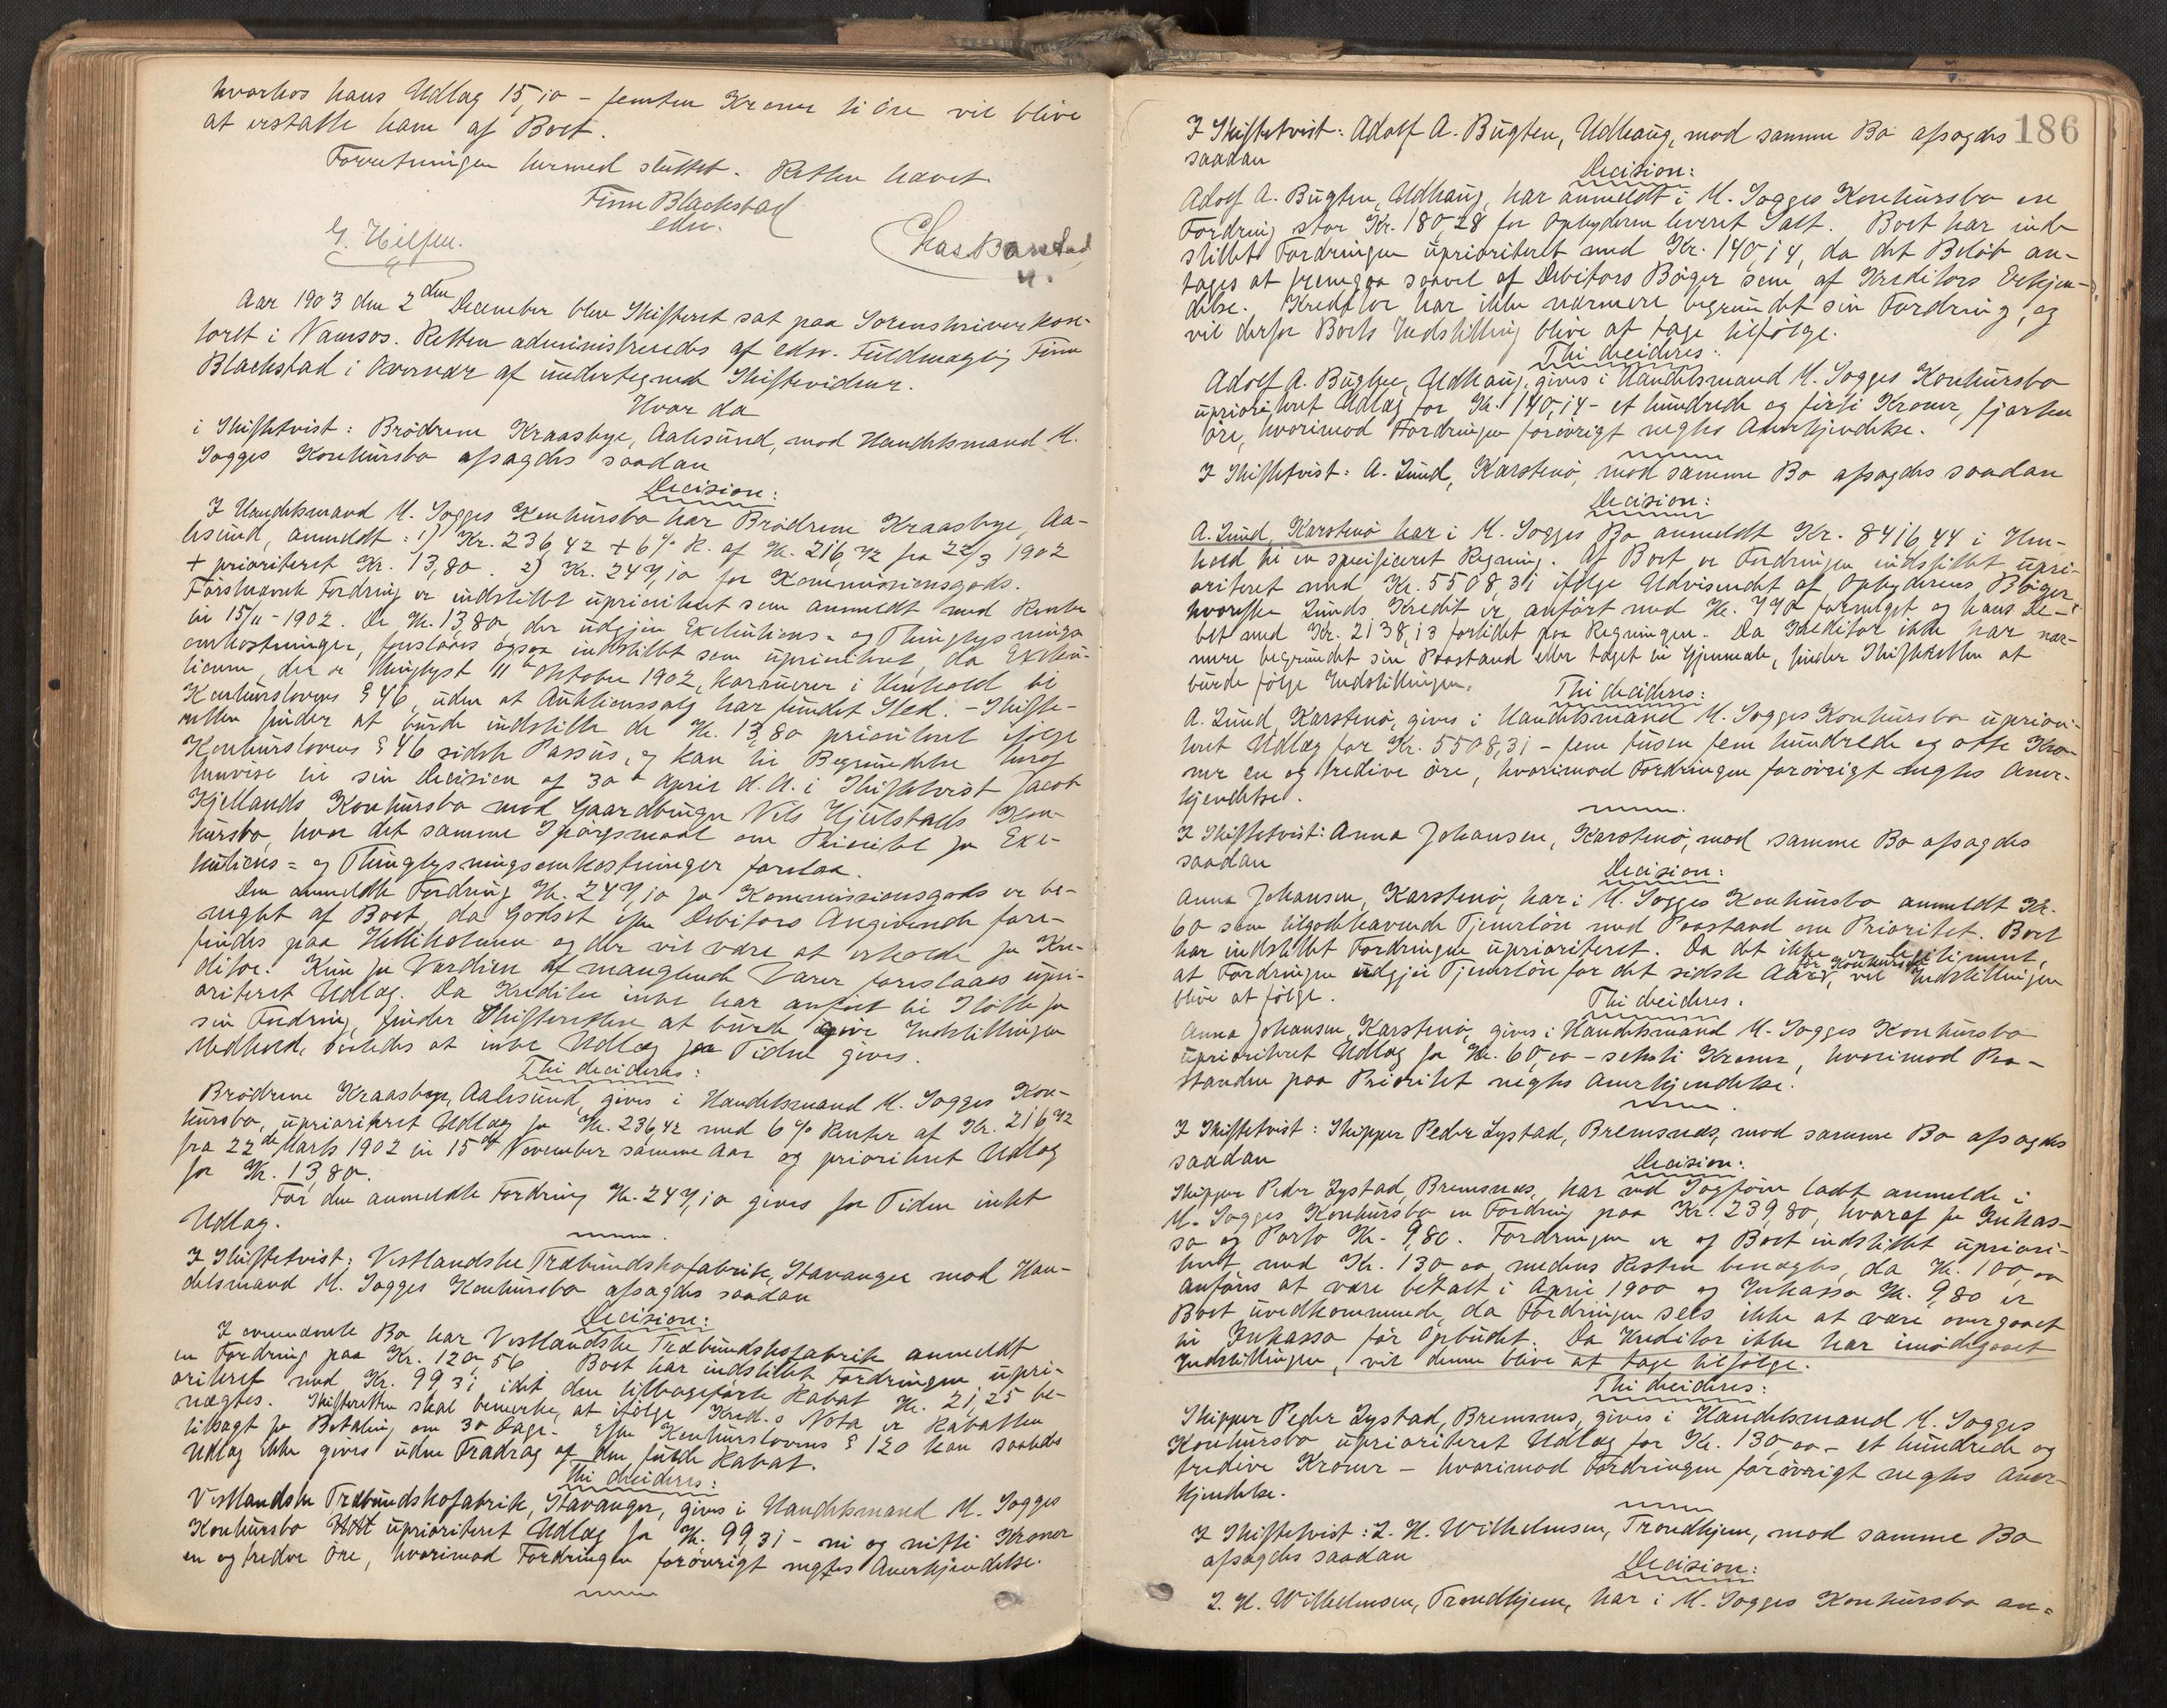 hvorhos hans Udlæg 15,10 - femten Kroner ti øre vil blive
at erstatte ham af Boet.
Forretningen hermed sluttet. Retten hævet.
Finn Blackstad
edsv.
G. Hilsen.
Chas Barstad
Aar 1903 den 2den December blev Skifteret sat paa Sorenskriverkon-
toret i Namsos. Retten administreredes af edsv. Fuldmægtig Finn
Blackstad i Overvær af undertegnede Skiftevidner.
Hvor da
i Skiftetvist: Brødrene Kraasbye, Aalesund, mod Handelsmand M.
Sagges Konkursbo afsagdes saadan
Decision:
I Handelsmand M. Sagges Konkursbo har Brødrene Kraasbye, Aa-
lesund, anmeldt: 1) Kr. 236,42 + 6% R. af Kr. 216,42 fra 22/3 1902
+ prioriteret Kr. 13,80. 2) Kr. 247,10 for Kommissionsgods.
Førstnævnte Fordring er indstillet uprioriteret som anmeldt med Rente
til 15/11 - 1902. De Kr. 13,80, der udgjør Exekutions- og Thinglysnings
omkostninger, foreslaaes ogsaa indstillet som uprioriteret, da Exeku-
tionen, der er thinglyst 11te Oktober 1902, i Henhold til
Konkurslovens § 46, uden at Auktionssalg har fundet Sted. - Skifte-
retten finder at burde indstille de Kr. 13,80 prioriteret ifølge
Konkurslovens § 46 sidste Passus, og kan til Begrundelse heraf
henvise til sin Decision af 30te April d. A. i Skiftetvist Jacob
Kjellands Konkursbo mod Gaardbruger Nils Hjulstads Kon-
kursbo, hvor det samme Spørgsmaal om Prioritet for Exe-
kutions- og Thinglysningsomkostninger forelaa.
Den anmeldte Fordring Kr. 247,10 for Kommissionsgods er be-
nægtet af Boet, da Godset efter Debitors Angivende fore-
findes paa og der vil være at erholde for Kre-
ditor. Kun for Værdien af manglende Varer foreslaaes upri-
oriteret Udlæg. Da Kreditor intet har anført til Støtte for
sin Fordring, finder Skifteretten at burde give Indstillingen
Medhold, saaledes at intet Udlæg for Tiden gives.
Thi decideres:
Brødrene Kraasbye, Aalesund, gives i Handelsmand M. Sagges Kon-
kursbo, uprioriteret Udlæg for Kr. 236,42 med 6% Renter af Kr. 216,42
fra 22de Marts 1902 til 15de November samme Aar og prioriteret Udlæg
for Kr. 13,80.
For den anmeldte Fordring Kr. 247,10 gives for Tiden intet
Udlæg.
I Skiftetvist: Vestlandske Træbundskofabrik, Stavanger mod Han-
delsmand M. Sagges Konkursbo afsagdes saadan
Decision:
I omhandlede Bo har Vestlandske Træbundskofabrik anmeldt
en Fordring paa Kr. 120,56. Boet har indstillet Fordringen upri-
oriteret med Kr. 99,31 idet den tilbageførte Rabat Kr. 21,25 be-
nægtes. Skifteretten skal bemerke, at ifølge Kred.s Nota er Rabatten
tilsagt for Betaling om 30 Dage. Efter Konkurslovens § 120 kan saaledes
Udlæg ikke gives uden Fradrag af den fulde Rabat.
Thi decideres:
Vestlandske Træbundskofabrik, Stavanger, gives i Handelsmand M. Sagges
Konkursbo uprioriteret Udlæg for Kr. 99,31 - ni og nitti Kroner
en og tredve Øre, hvorimod Fordringen forøvrigt negtes Anerkjendelse.
186
I Skiftetvist: Adolf A. Bugten, Udhaug, mod samme Bo afsagdes
saadan
Decision:
Adolf A. Bugten, Udhaug, har anmeldt i M. Sagges Konkursbo en
Fordring stor Kr. 180,28 for Opbyderen leveret Salt. Boet har ind-
stillet Fordringen uprioriteret med Kr. 140,14, da det Beløb an-
tages at fremgaa saavel af Debitors Bøger som af Kreditors Erkjen-
delse. Kreditor har ikke nærmere begrundet sin Fordring, og
vil derfor Boets Indstilling blive at tage tilfølge.
Thi decideres:
Adolf A. Bugten, Udhaug, gives i Handelsmand M. Sagges Konkursbo
uprioriteret Udlæg for Kr. 140,14 - et hundrede og firti Kroner, fjorten
Øre, hvorimod Fordringen forøvrigt negtes Anerkjendelse.
I Skiftetvist: A. Lund, Karstenø, mod samme Bo afsagdes saadan
Decision:
A. Lund, Karstenø har i M. Sagges Bo anmeldt Kr. 8416,44 i Hen-
hold til en specificeret Regning. Af Boet er Fordringen indstillet upri-
oriteret med Kr. 5508,31 ifølge Udvisendet af Opbyderens Bøger,
hvorefter Lunds Kredit er anført med Kr. 770 formeget og hans De-
bet med Kr. 2138,13 forlidet paa Regningen. Da Kreditor ikke har nær-
mere begrundet sin Paastand eller taget til Gjenmæle, finder Skifteretten at
burde følge Indstillingen.
Thi decideres:
A. Lund, Karstenø, gives i Handelsmand M. Sagges Konkursbo upriori-
teret Udlæg for Kr. 5508,31 - fem tusen fem hundrede og otte Kro-
ner en og tredive øre, hvorimod Fordringen forøvrigt negtes Aner-
kjendelse.
I Skiftetvist: Anna Johansen, Karstenø, mod samme Bo afsagdes
saadan
Decision:
Anna Johansen, Karstenø, har i M. Sagges Konkursbo anmeldt Kr.
60 som tilgodehavende Tjenerløn med Paastand om Prioritet. Boet
har indstillet Fordringen uprioriteret. Da det ikke er legitimeret,
at Fordringen udgjør Tjenerløn for det sidste Aar før Konkursen, vil Indstillingen
blive at følge.
Thi decideres:
Anna Johansen, Karstenø, gives i Handelsmand M. Sagges Konkursbo
uprioriteret Udlæg for Kr. 60,00 - seksti Kroner, hvorimod Paa-
standen paa Prioritet negtes Anerkjendelse.
I Skiftetvist: Skipper Peder Lystad, Bremsnes, mod samme Bo afsagdes
saadan
Decision:
Skipper Peder Lystad, Bremsnes, har ved Sagfører ladet anmelde i
M. Sagges Konkursbo en Fordring paa Kr. 239,80, hvoraf for Inkas-
so og Porto Kr. 9,80. Fordringen er af Boet indstillet upriori-
teret med Kr. 130,00, medens Resten benægtes, da Kr. 100,00
anføres at være betalt i April 1900 og Inkasso Kr. 9,80 er
Boet uvedkommende, da Fordringen sees ikke at være overgaaet
til Inkasso før Opbudet. Da Kreditor ikke har imødegaaet
Indstillingen, vil denne blive at tage tilfølge.
Thi decideres:
Skipper Peder Lystad, Bremsnes, gives i Handelsmand M. Sagges
Konkursbo uprioriteret Udlæg for Kr. 130,00 - et hundrede og
tredive Kroner - hvorimod Fordringen forøvrigt negtes Aner-
kjendelse.
I Skiftetvist: L. H. Wilhelmsen, Trondhjem, mod samme Bo
afsagdes saadan
Decision:
L. H. Wilhelmsen, Trondhjem, har i M. Sagges Konkursbo an-